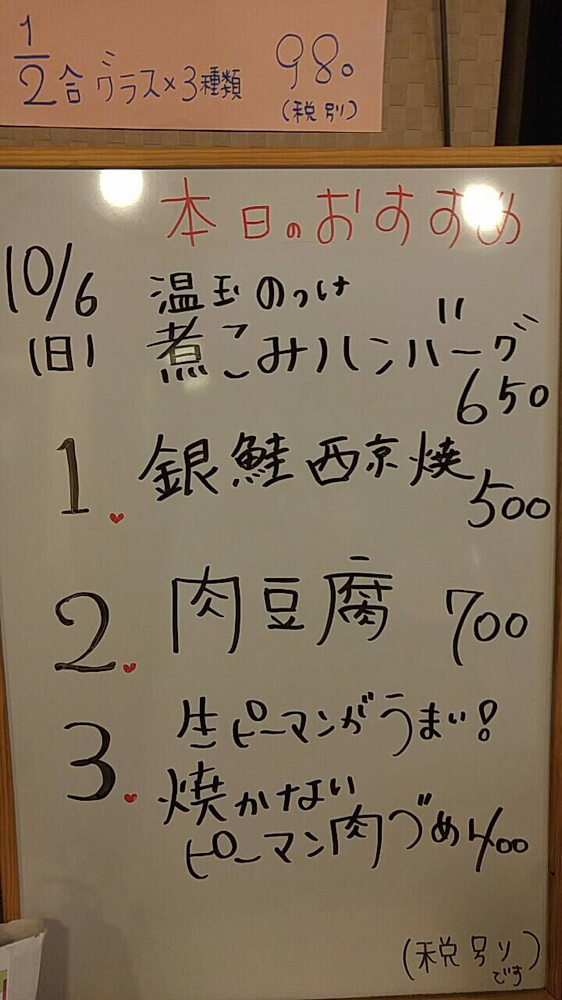 1/2合グラス×3種類 980
(税別)
本日のおすすめ
10/6
(日)
温玉のっけ
煮こみハンバーグ
650
1. 銀鮭西京焼
500
2. 肉豆腐 700
3. 生ピーマンがうまい!
焼かない
ピーマン肉づめ 400
(税別です)